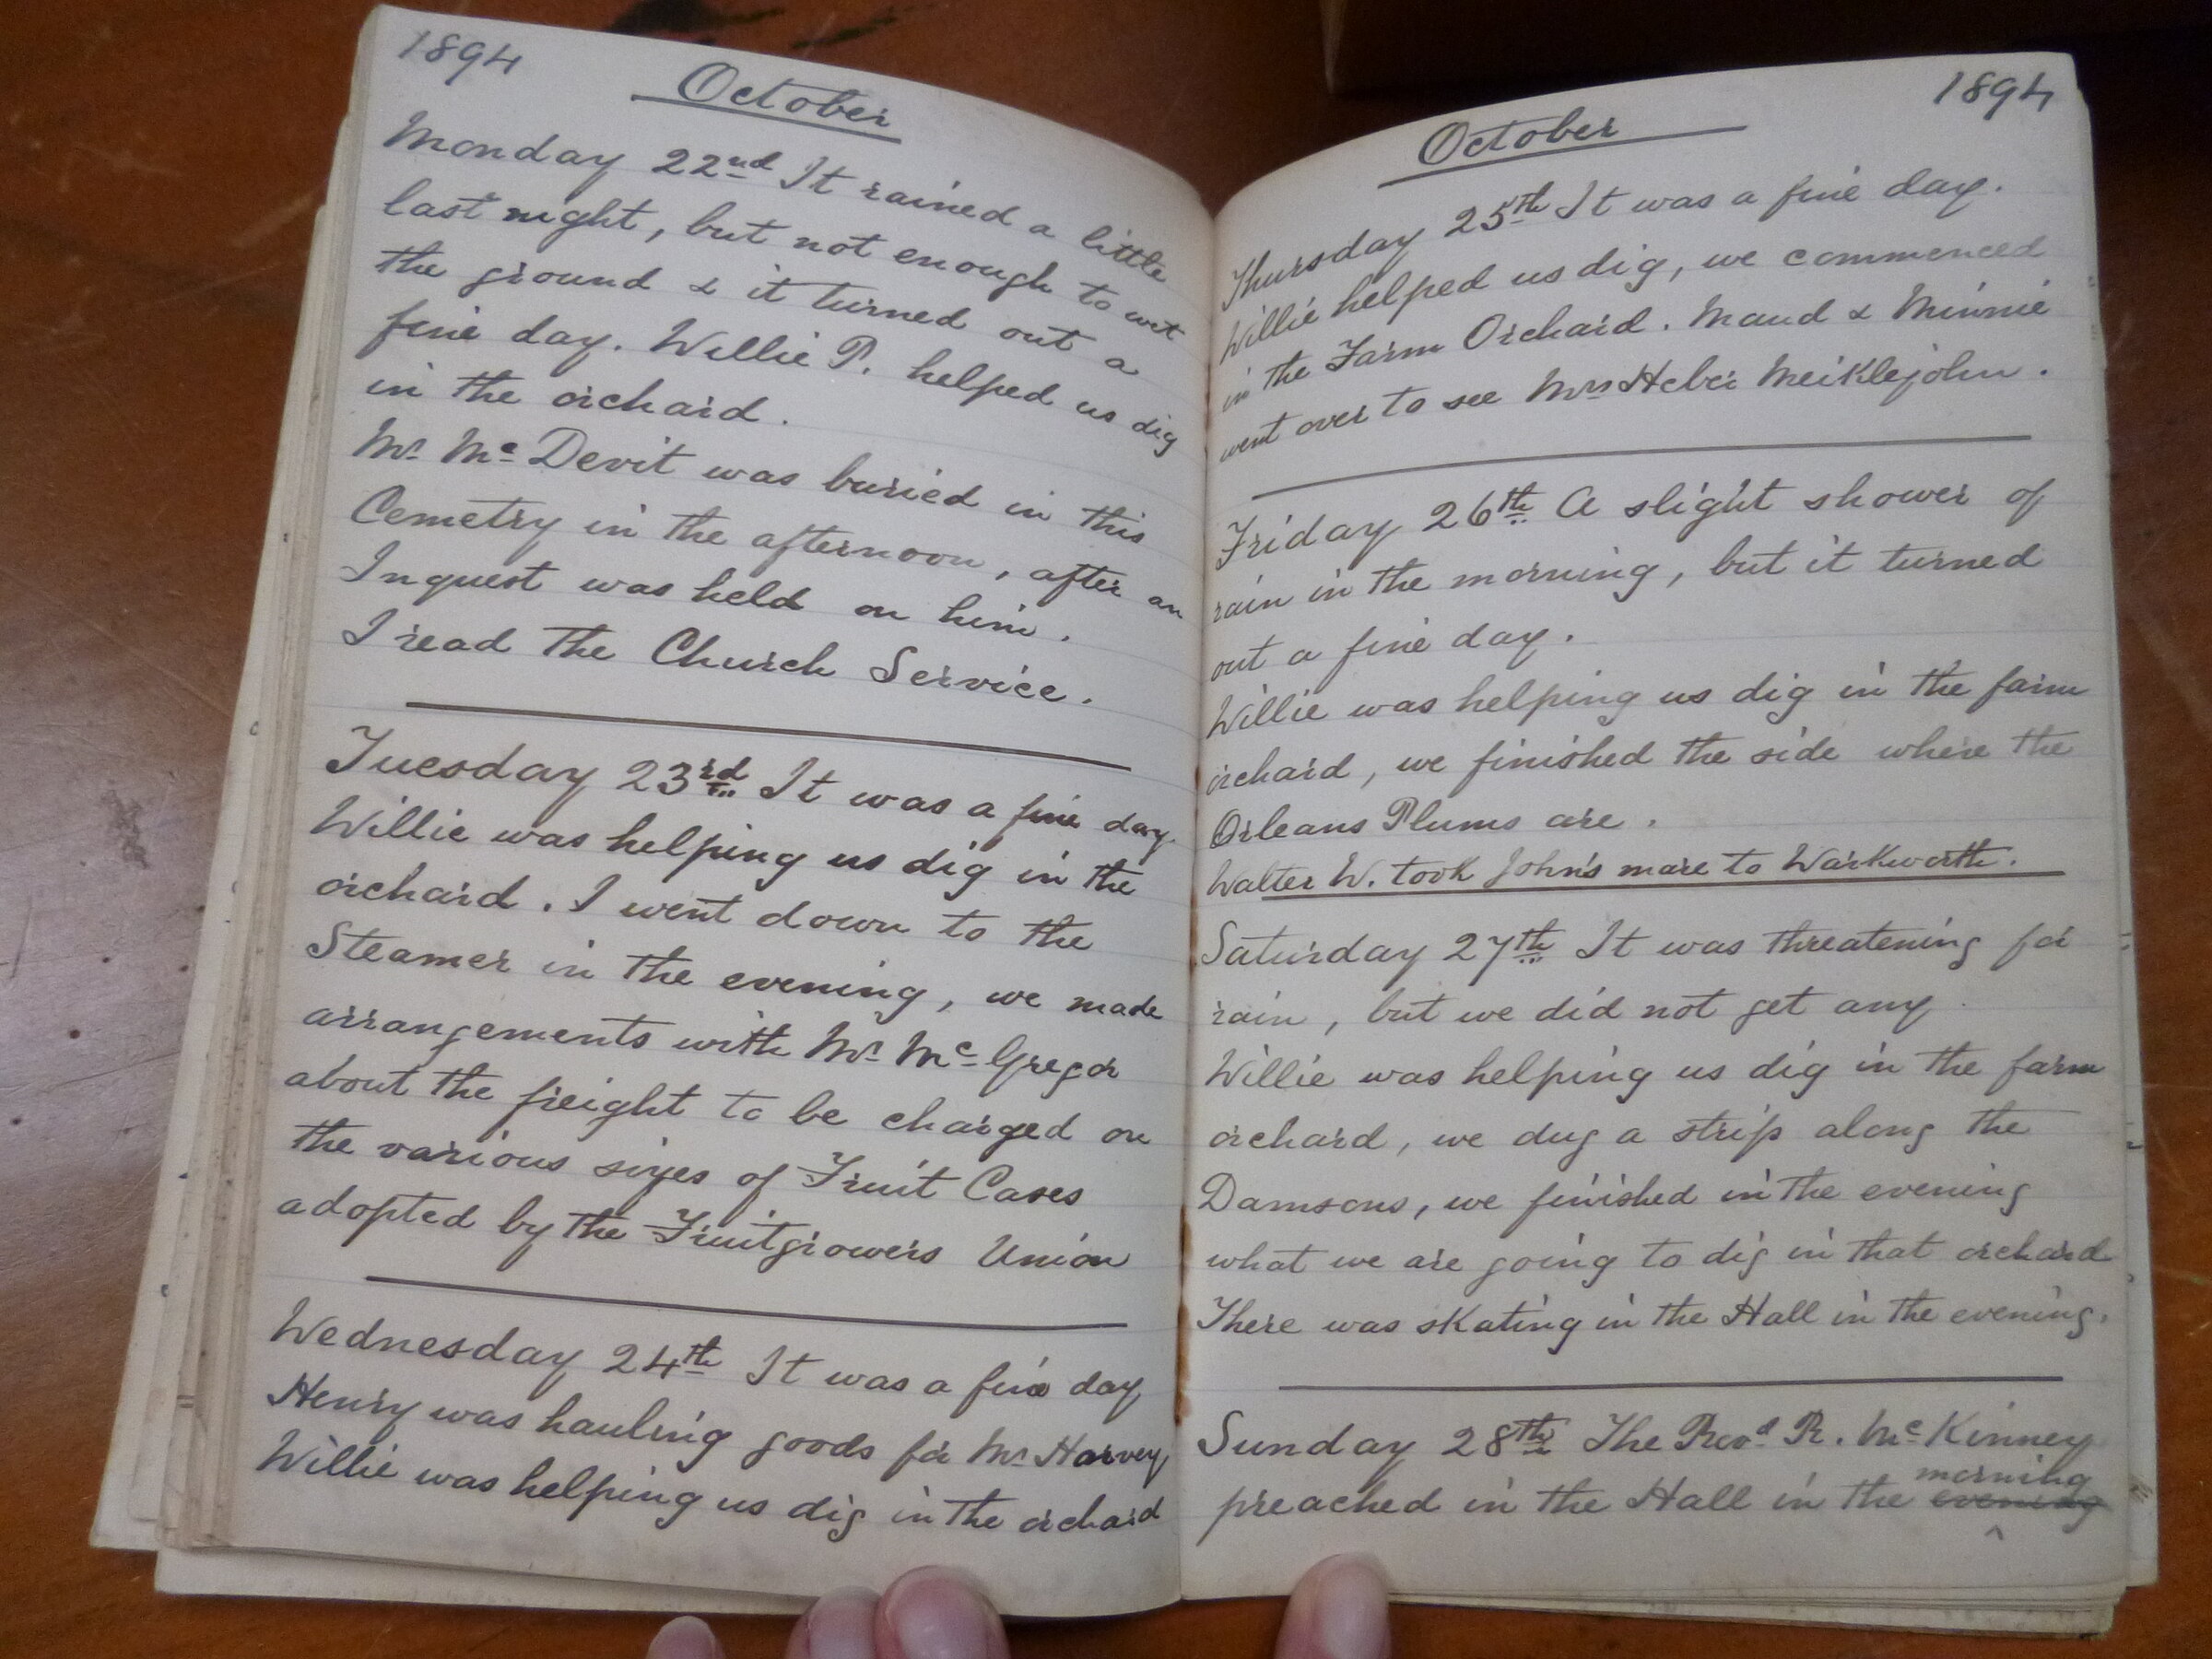 1894
October
Monday 22nd It rained a little
last night, but not enough to wet
the ground & it turned out a
fine day. Willie P. helped us dig
in the orchard.
Mr. Mc Devit was buried in this
Cemetry in the afternoon, after an
Inquest was held on him.
I read the Church Service.
Tuesday 23rd It was a fine day.
Willie was helping us dig in the
orchard. I went down to the
Steamer in the evening, we made
arrangements with Mr. McGregor
about the freight to be charged on
the various sizes of Fruit Cases
adopted by the Fruitgrowers Union
Wednesday 24th It was a fine day
Henry was hauling goods for Mr Harvey,
Willie was helping us dig in the orchard
1894
October
Thursday 25th It was a fine day.
Willie helped us dig, we commenced
in the Farm Orchard. Maud & Minnie
went over to see Mrs Heber Meiklejohn.
Friday 26th A slight shower of
rain in the morning, but it turned
out a fine day.
Willie was helping us dig in the farm
orchard, we finished the side where the
Orleans Plums are.
Walter W. took John's mare to Warkworth.
Saturday 27th It was threatening for
rain, but we did not get any.
Willie was helping us dig in the farm
orchard, we dug a strip along the
Damsons, we finished in the evening
what we are going to dig in that orchard
There was skating in the Hall in the evening.
Sunday 28th The Revd R. McKinney
morning
preached in the Hall in the evening